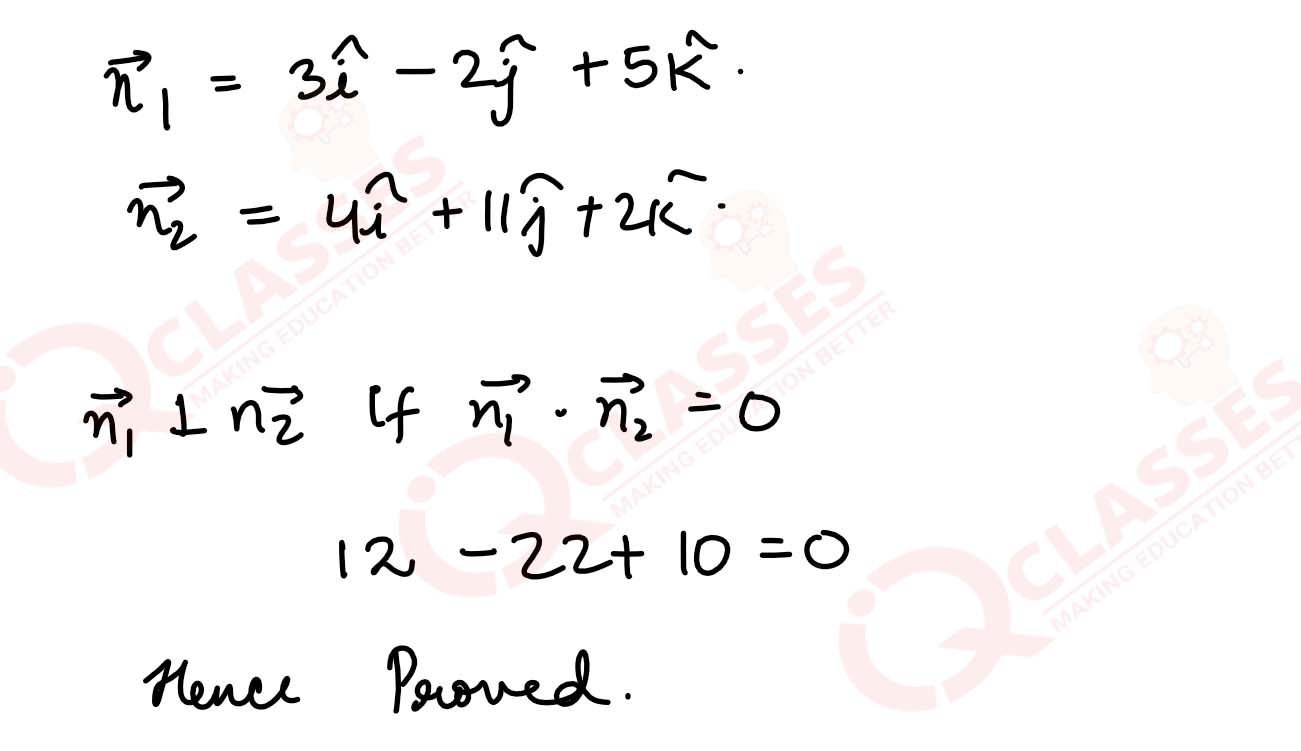 n⃗₁ = 3î − 2ĵ + 5k̂.
n⃗₂ = 4î + 11ĵ + 2k̂.
n⃗₁ ⊥ n⃗₂ if n⃗₁ . n⃗₂ = 0
12 − 22 + 10 = 0
Hence Proved.
iQ CLASSES
MAKING EDUCATION BETTER
iQ CLASSES
MAKING EDUCATION BETTER
iQ CLASSES
MAKING EDUCATION BETTER